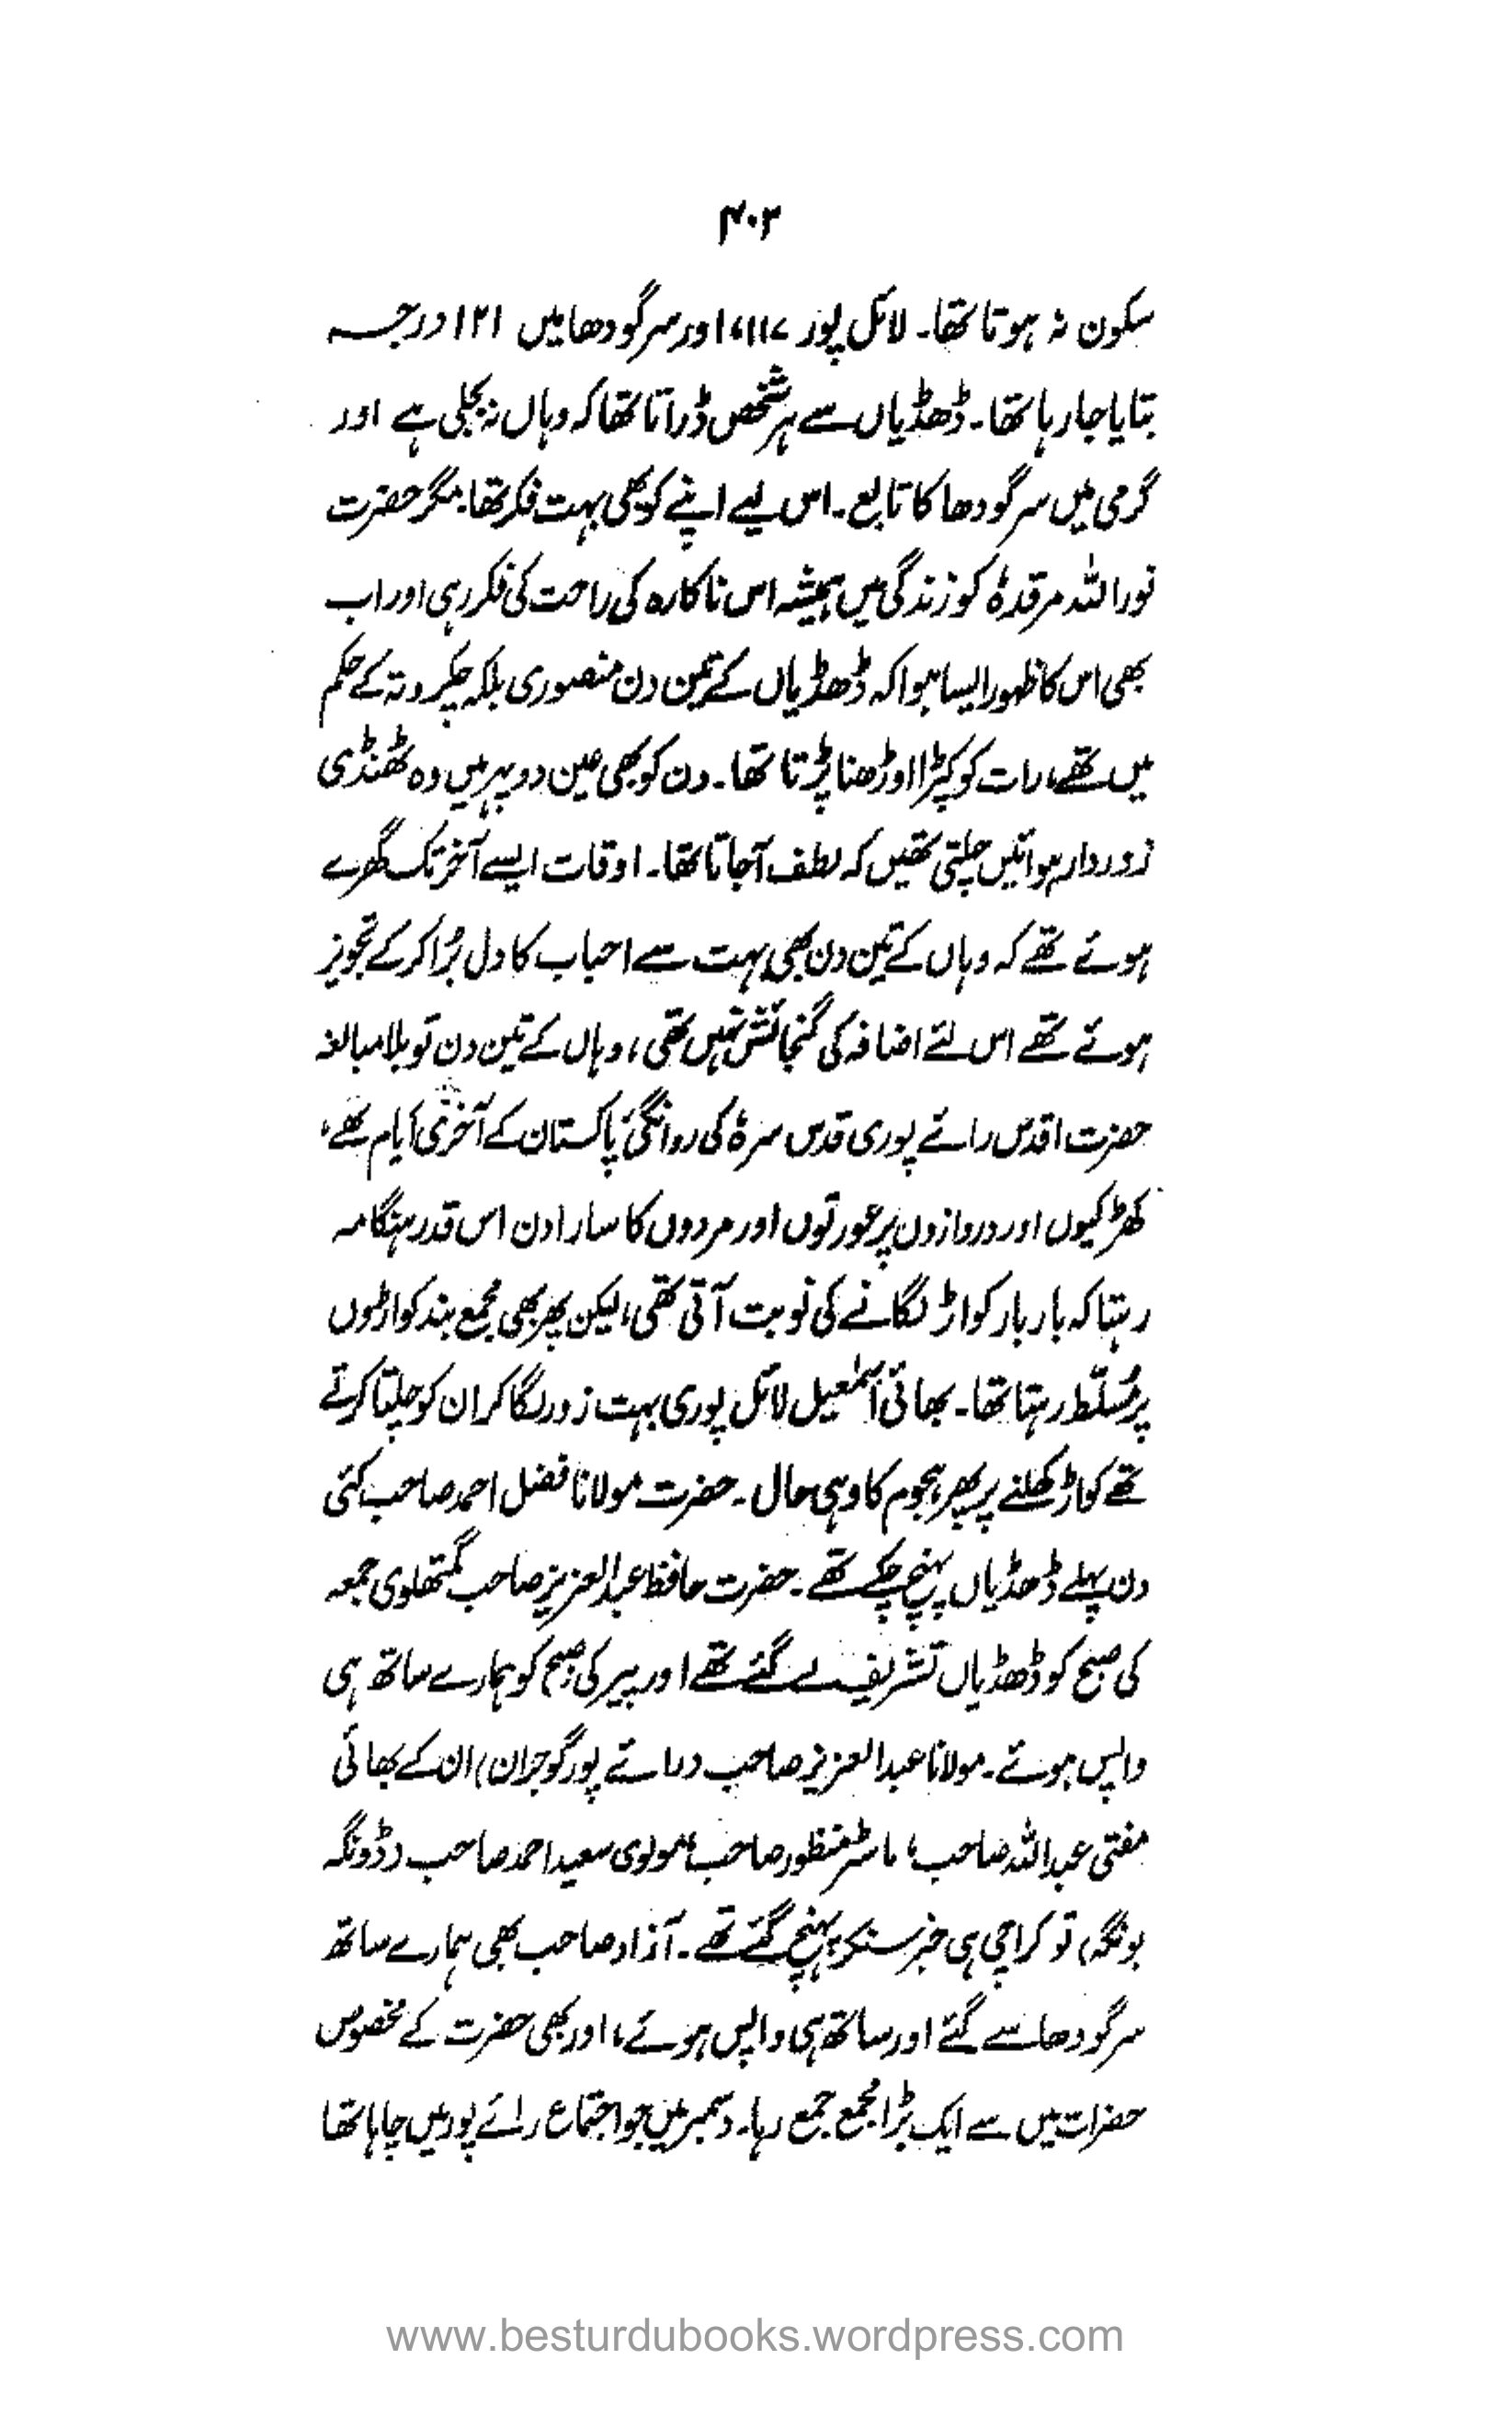 ۴۰۳
سکون نہ ہوتا تھا۔ لائل پور ۱۱۷، اور سرگودھا میں ۱۲۱ درجہ
بتایا جا رہا تھا۔ ڈھڈیاں سے ہر شخص ڈراتا تھا کہ وہاں نہ بجلی ہے اور
گرمی میں سرگودھا کا تابع۔ اس لیے اپنے کو بھی بہت فکر تھا۔ مگر حضرت
نور اللہ مرقدہٗ کو زندگی میں ہمیشہ اس ناکارہ کی راحت کی فکر رہی اور اب
بھی اس کا ظہور ایسا ہوا کہ ڈھڈیاں کے تین دن منصوری بلکہ چکروتہ کے حکم
میں تھے، رات کو کپڑا اوڑھنا پڑتا تھا۔ دن کو بھی عین دوپہر میں وہ ٹھنڈی
زوردار ہوائیں چلتی تھیں کہ لطف آجاتا تھا۔ اوقات ایسے آخر تک گھرے
ہوئے تھے کہ وہاں کے تین دن بھی بہت سے احباب کا دل بُرا کر کے تجویز
ہوئے تھے اس لئے اضافہ کی گنجائش نہیں تھی، وہاں کے تین دن تو بلامبالغہ
حضرت اقدس رائے پوری قدس سرہٗ کی روانگیٔ پاکستان کے آخری ایام تھے،
کھڑکیوں اور دروازوں پر عورتوں اور مردوں کا سارا دن اس قدر ہنگامہ
رہتا کہ بار بار کواڑ لگانے کی نوبت آتی تھی، لیکن پھر بھی مجمع بند کواڑوں
پر مُسلّط رہتا تھا۔ بھائی اسمٰعیل لائل پوری بہت زور لگا کر ان کو چلتا کرتے
تھے کواڑ کھلنے پر پھر ہجوم کا وہی حال۔ حضرت مولانا فضل احمد صاحب کئی
دن پہلے ڈھڈیاں پہنچ چکے تھے۔ حضرت حافظ عبدالعزیز صاحب گمتھلوی جمعہ
کی صبح کو ڈھڈیاں تشریف لے گئے تھے اور پیر کی صبح کو ہمارے ساتھ ہی
واپس ہوئے۔ مولانا عبدالعزیز صاحب (رائے پور گوجران) ان کے بھائی
مفتی عبداللہ صاحب، ماسٹر منظور صاحب، مولوی سعید احمد صاحب (ڈونگہ
بونگہ) تو کراچی ہی خبر سنکر پہنچ گئے تھے۔ آزاد صاحب بھی ہمارے ساتھ
سرگودھا سے گئے اور ساتھ ہی واپس ہوئے، اور بھی حضرت کے مخصوص
حضرات میں سے ایک بڑا مجمع جمع رہا۔ دسمبر میں جو اجتماع رائے پور میں چاہا تھا
www.besturdubooks.wordpress.com